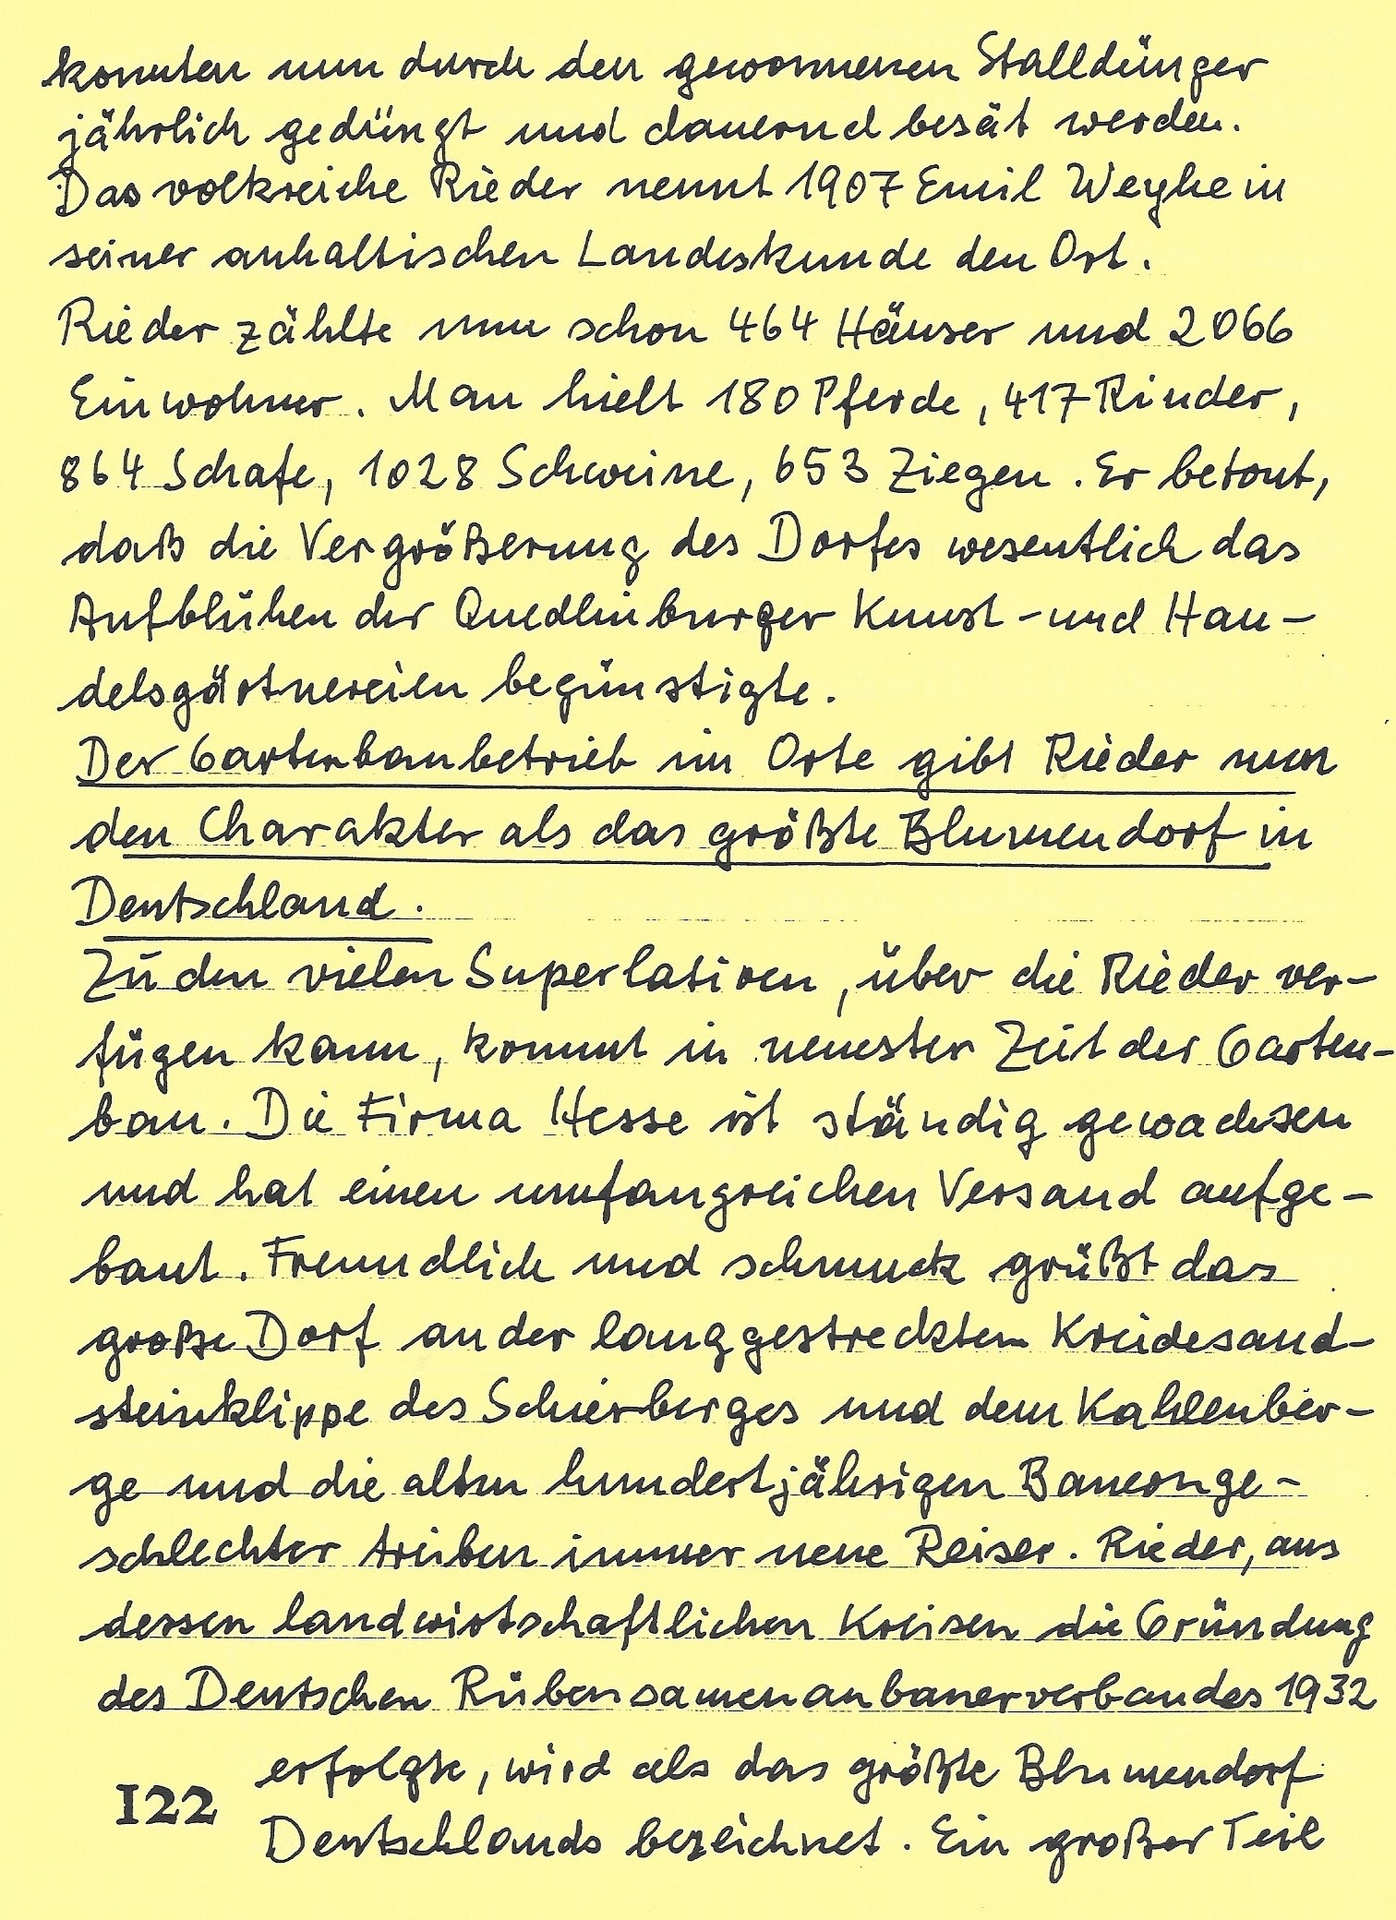 konnten nun durch den gewonnenen Stalldünger
jährlich gedüngt und dauernd besät werden.
Das volkreiche Rieder nennt 1907 Emil Weyhe in
seiner anhaltischen Landeskunde den Ort.
Rieder zählte nun schon 464 Häuser und 2066
Einwohner. Man hielt 180 Pferde, 417 Rinder,
864 Schafe, 1028 Schweine, 653 Ziegen. Er betont,
daß die Vergrößerung des Dorfes wesentlich das
Aufblühen der Quedlinburger Kunst- und Han-
delsgärtnereien begünstigte.
Der Gartenbaubetrieb im Orte gibt Rieder nun
den Charakter als das größte Blumendorf in
Deutschland.
Zu den vielen Superlativen, über die Rieder ver-
fügen kann, kommt in neuester Zeit der Garten-
bau. Die Firma Hesse ist ständig gewachsen
und hat einen umfangreichen Versand aufge-
baut. Freundlich und schmuck grüßt das
große Dorf an der langgestreckten Kreidesand-
steinklippe des Schierberges und dem Kahlenber-
ge und die alten hundertjährigen Bauernge-
schlechter treiben immer neue Reiser. Rieder, aus
dessen landwirtschaftlichen Kreisen die Gründung
des Deutschen Rübensamenanbauerverbandes 1932
erfolgte, wird als das größte Blumendorf
Deutschlands bezeichnet. Ein großer Teil
122